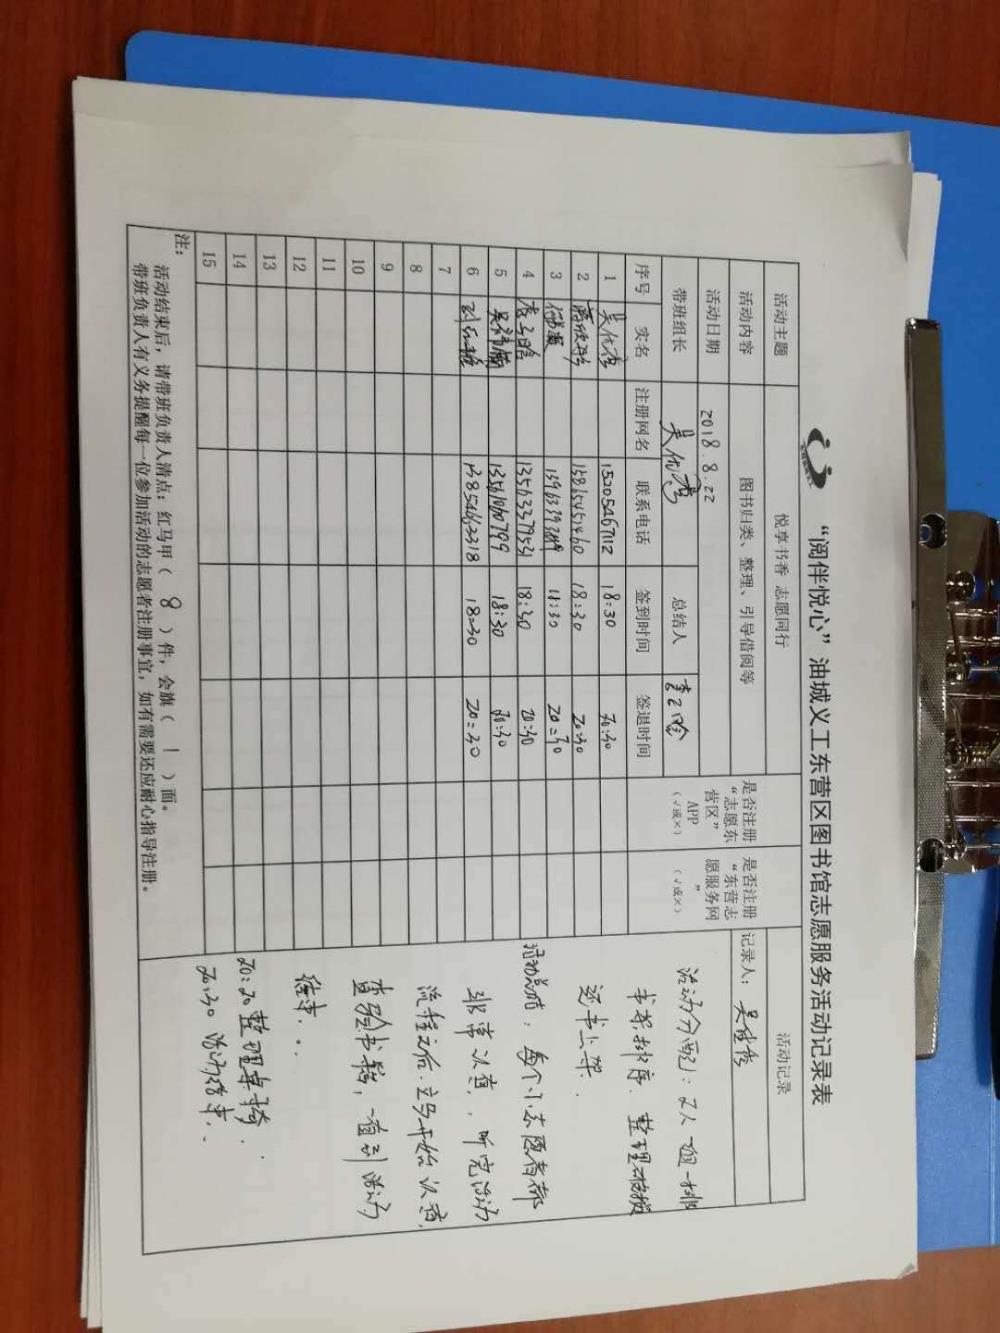 “阅伴悦心”油城义工东营区图书馆志愿服务活动记录表
活动主题 悦享书香 志愿同行 活动记录
活动内容 图书归类、整理、引导借阅等
活动日期 2018.8.22
带班组长 吴优秀 总结人
是否注册“志愿东营区”APP（√或×）
是否注册“东营志愿服务网”（√或×）
记录人：
序号 实名 注册网名 联系电话 签到时间 签退时间
1 吴优秀 15205467112 18:30 20:30
2 15815451460 18:30 20:30
3 18:30 20:30
4 13563379531 18:30 20:30
5 13561060799 18:30 20:30
6 13854663218 18:30 20:30
7
8
9
10
11
12
13
14
15
活动分配：2人一组一排
书架排序，整理
还书上架.
活动总结：每个小志愿者都
非常认真，听完活动
流程之后，立马开始认真
查验书籍，一直到活动
结束...
20:20整理桌椅.
20:30活动结束..
注：活动结束后，请带班负责人清点：红马甲（8）件，会旗（1）面。
带班负责人有义务提醒每一位参加活动的志愿者注册事宜，如有需要还应耐心指导注册。